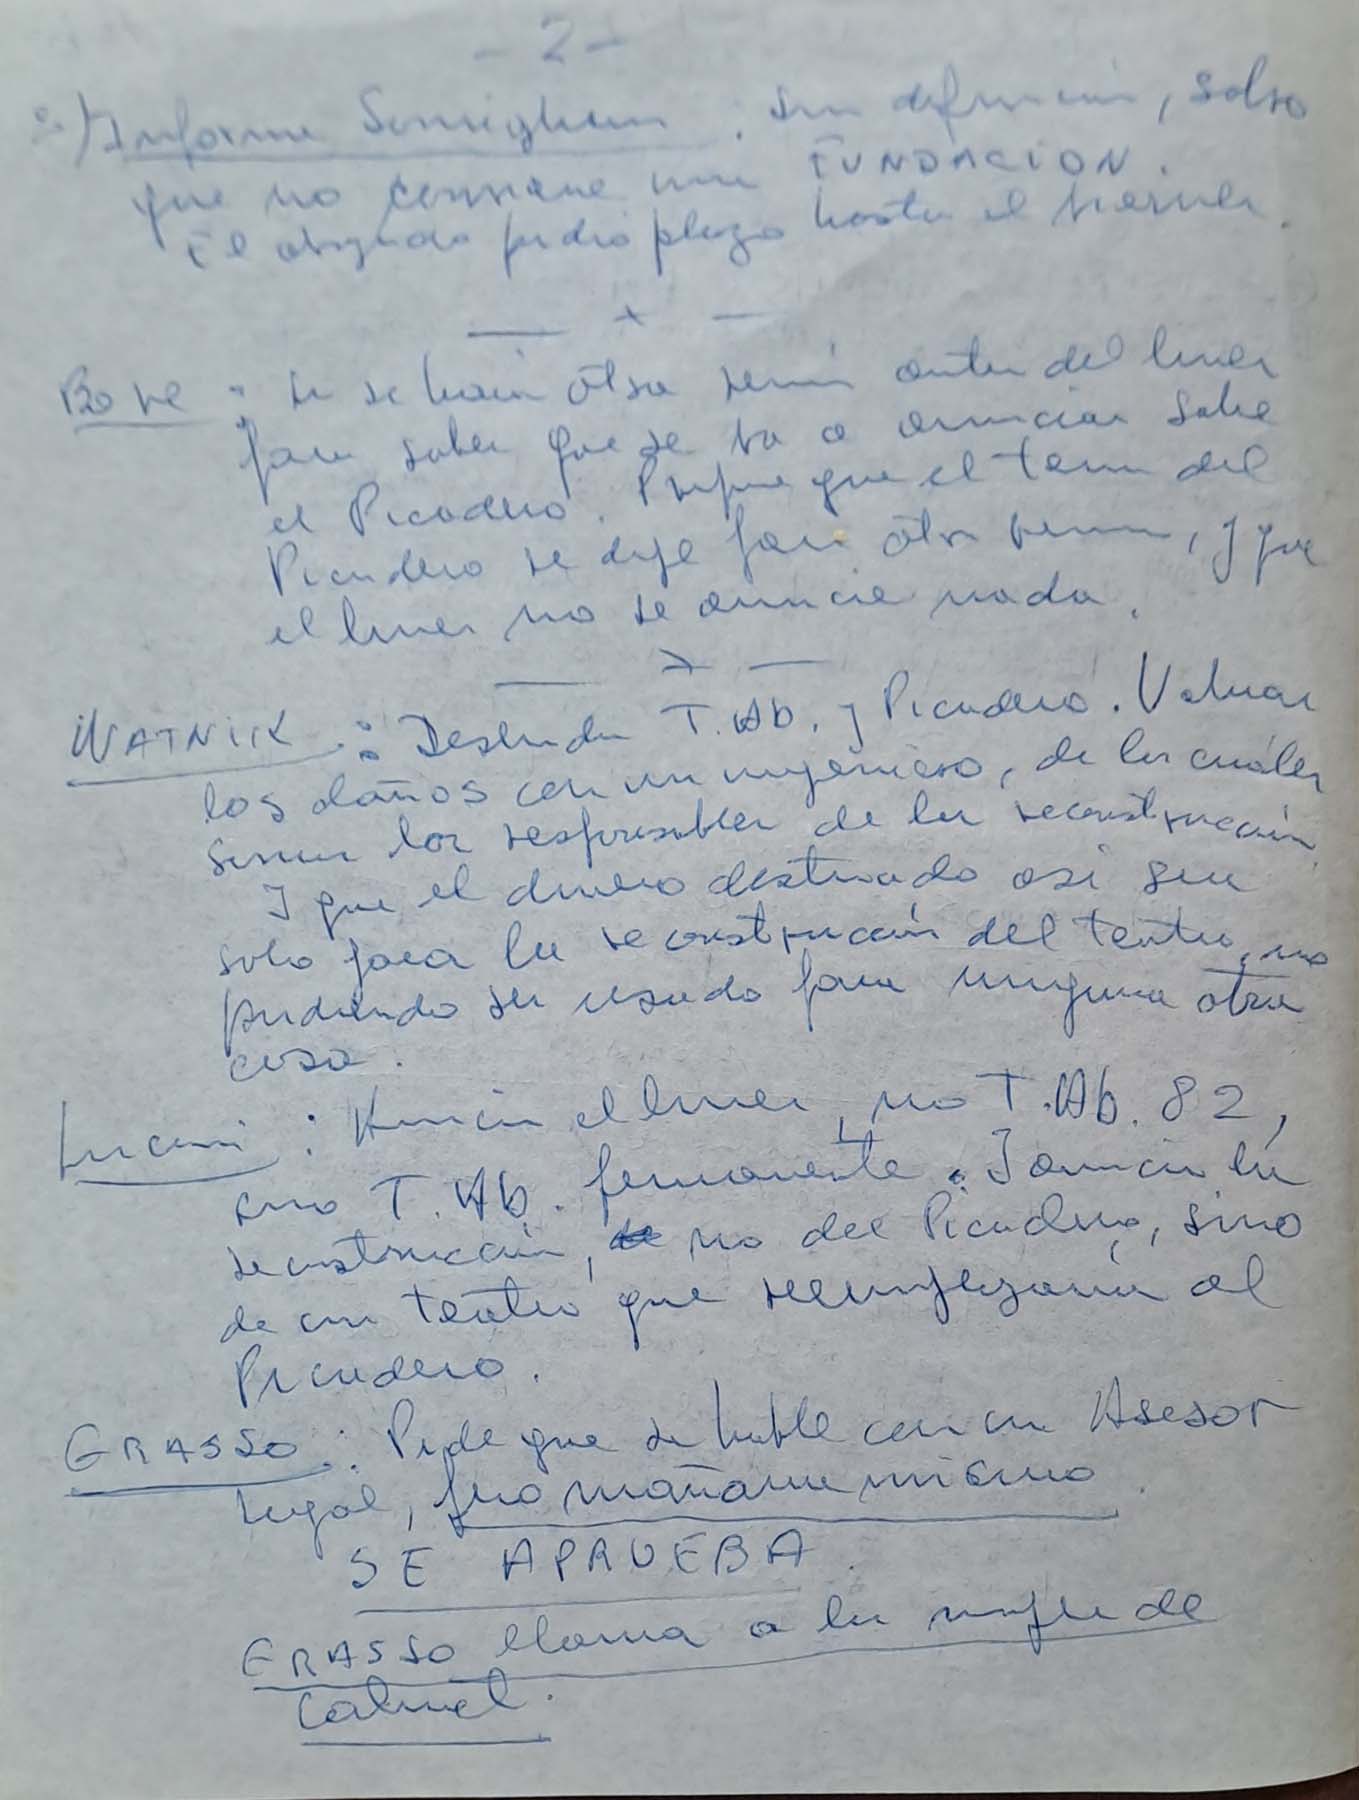 - 2 -
Informe Somigliana : sin definición, salvo
que no conviene una FUNDACION.
El abogado pidió plazo hasta el viernes.
: si se hacía otra reunión antes del lunes
para saber que se va a anunciar sobre
el Picadero. Propone que el tema del
Picadero se deje para otra reunión, y que
el lunes no se anuncie nada.
WATNIK : Deslinda T.Ab. y Picadero. Valuar
los daños con un ingeniero, de los cuáles
serían los responsables de la reconstrucción
Y que el dinero destinado así sea
solo para la reconstrucción del teatro, no
pudiendo ser usado para ninguna otra
cosa.
: Anuncia el lunes, no T.Ab. 82,
sino T.Ab. permanente. Y anuncia la
reconstrucción, no del Picadero, sino
de un teatro que reemplazaría al
Picadero.
GRASSO : Pide que se hable con un Asesor
Legal, pero mañana mismo.
SE APRUEBA.
GRASSO llama a la mujer de